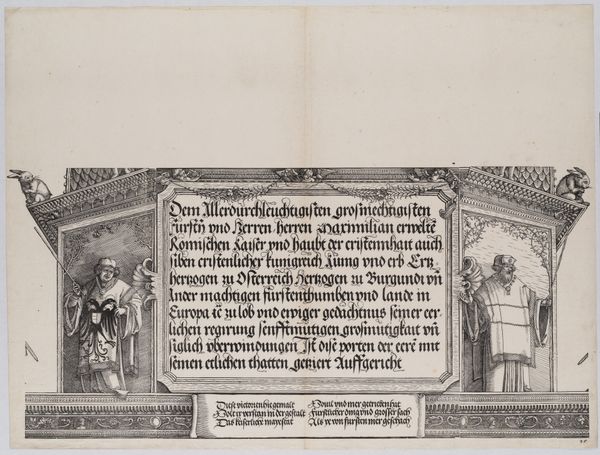 Dem Allerdurchleuchtigisten grosmechtigisten
Fursten vnd Herren herren Maximilian erwelte
Romischen Kaiser vnd haubt der cristennhait auch
siben cristenlicher kunigreich Kunig vnd erb Ertz
hertzogen zu Osterreich Hertzogen zu Burgundi vn
Ander machtigen furstenthumben vnd lande in
Europa ꝛc̄ zu lob vnd ewiger gedachtnus seiner eer
lichen regirung senfftmutigen grosmutigkait vn
siglich vberwindungen Ist dise porten der eere mit
seinen etlichen thatten getziert Auffgericht
Diese victorien hie gemalt
Solt ir verstan in der gestalt
Das keiserliche mayestat
Souil vnd mer getrieben hat
Furstlicher ding vnd grosser sach
Als ye von fursten mer geschach